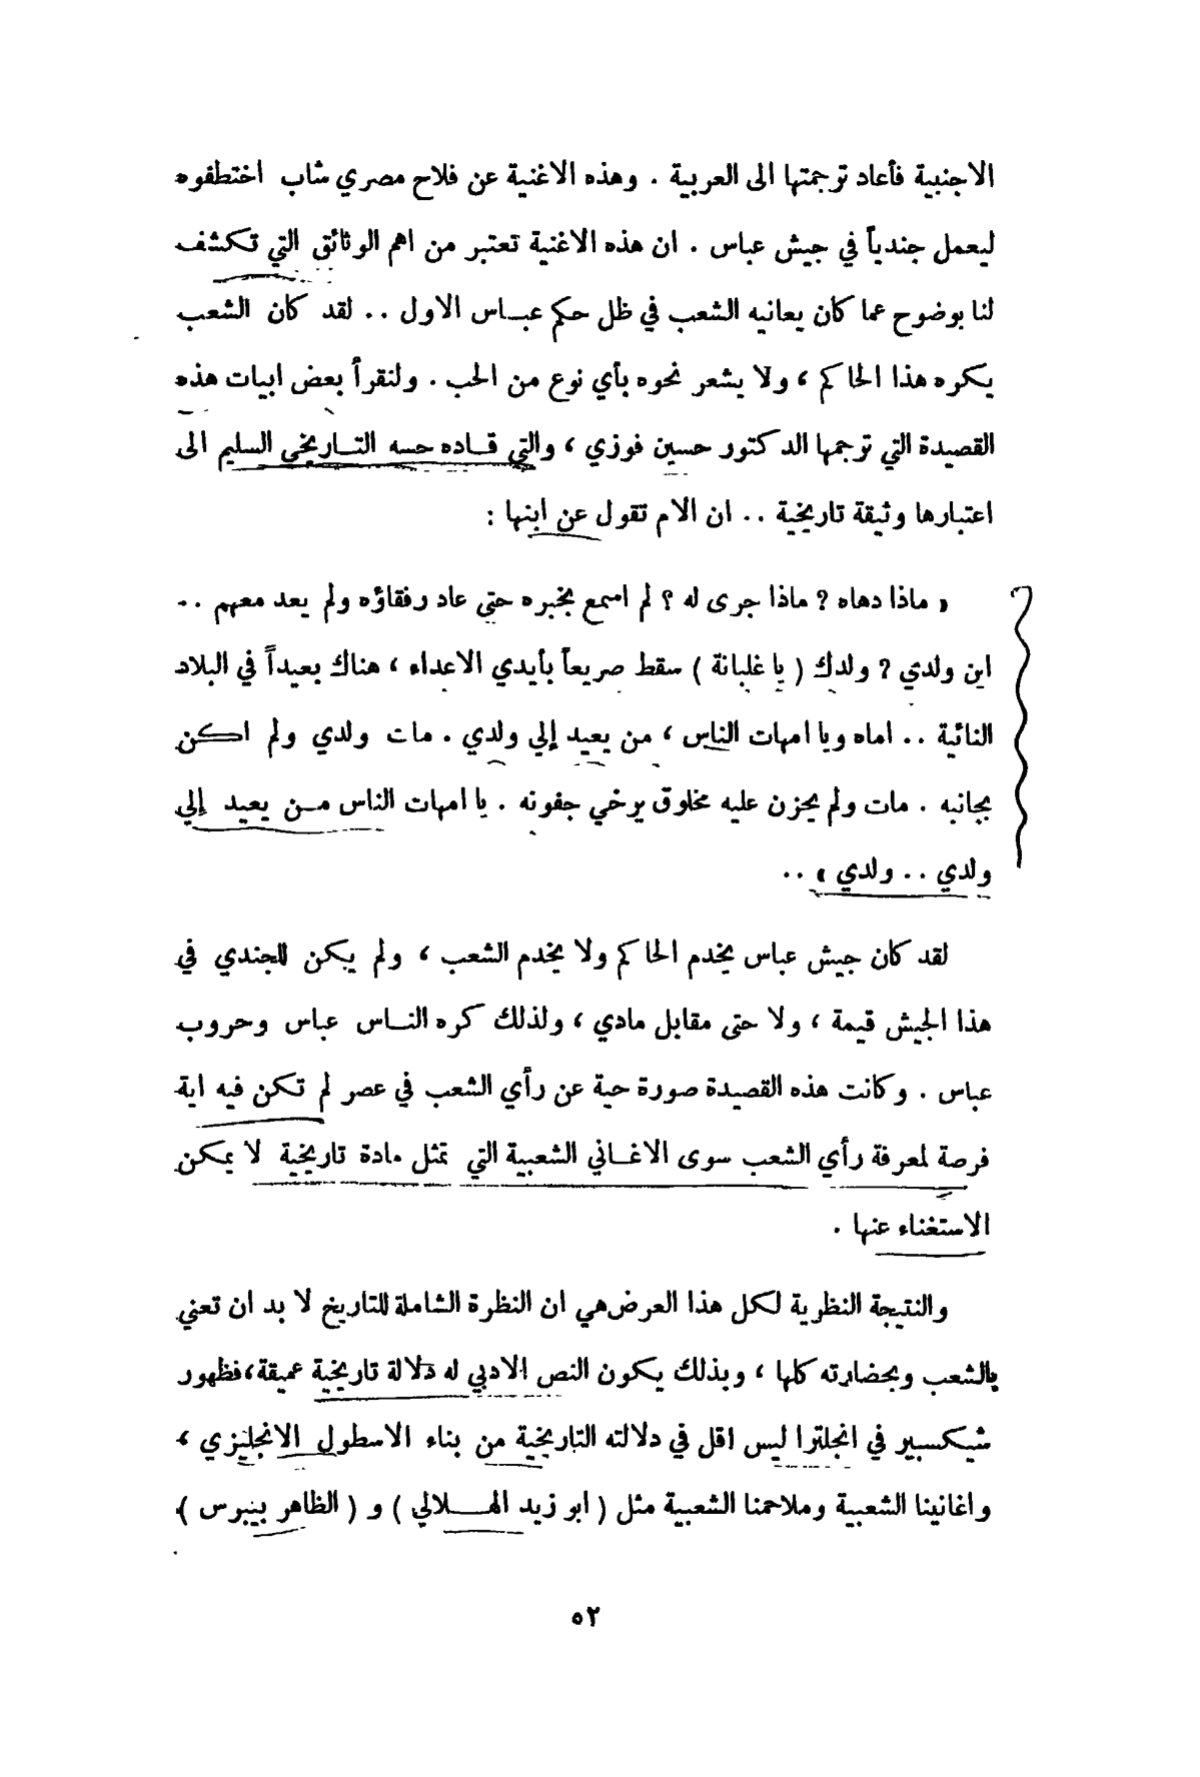 الاجنبية فأعاد ترجمتها الى العربية . وهذه الاغنية عن فلاح مصري شاب اختطفوه
ليعمل جندياً في جيش عباس . ان هذه الاغنية تعتبر من اهم الوثائق التي تكشف
لنا بوضوح عما كان يعانيه الشعب في ظل حكم عبـاس الاول .. لقد كان الشعب
يكره هذا الحاكم ، ولا يشعر نحوه بأي نوع من الحب . ولنقرأ بعض ابيات هذه
القصيدة التي ترجمها الدكتور حسين فوزي ، والتي قـاده حسه التـاريخي السليم الى
اعتبارها وثيقة تاريخية .. ان الام تقول عن ابنها :
« ماذا دهاه ؟ ماذا جرى له ؟ لم اسمع بخبره حتى عاد رفقاؤه ولم يعد معهم ..
اين ولدي ؟ ولدك ( يا غلبانة ) سقط صريعاً بأيدي الاعداء ، هناك بعيداً في البلاد
النائية .. اماه ويا امهات الناس ، من يعيد إلي ولدي . مات ولدي ولم اكن
بجانبه . مات ولم يحزن عليه مخلوق يرخي جفونه . يا امهات الناس مـن يعيد إلي
ولدي .. ولدي » ..
لقد كان جيش عباس يخدم الحاكم ولا يخدم الشعب ، ولم يكن للجندي في
هذا الجيش قيمة ، ولا حتى مقابل مادي ، ولذلك كره النـاس عباس وحروب
عباس . وكانت هذه القصيدة صورة حية عن رأي الشعب في عصر لم تكن فيه اية
فرصة لمعرفة رأي الشعب سوى الاغـاني الشعبية التي تمثل مادة تاريخية لا يمكن
الاستغناء عنها .
والنتيجة النظرية لكل هذا العرض هي ان النظرة الشاملة للتاريخ لا بد ان تعني
بالشعب وبحضارته كلها ، وبذلك يكون النص الادبي له دلالة تاريخية عميقة، فظهور
شيكسبير في انجلترا ليس اقل في دلالته التاريخية من بناء الاسطول الانجليزي ،
واغانينا الشعبية وملاحمنا الشعبية مثل ( ابو زيد الهـلالي ) و ( الظاهر بيبرس )
٥٢